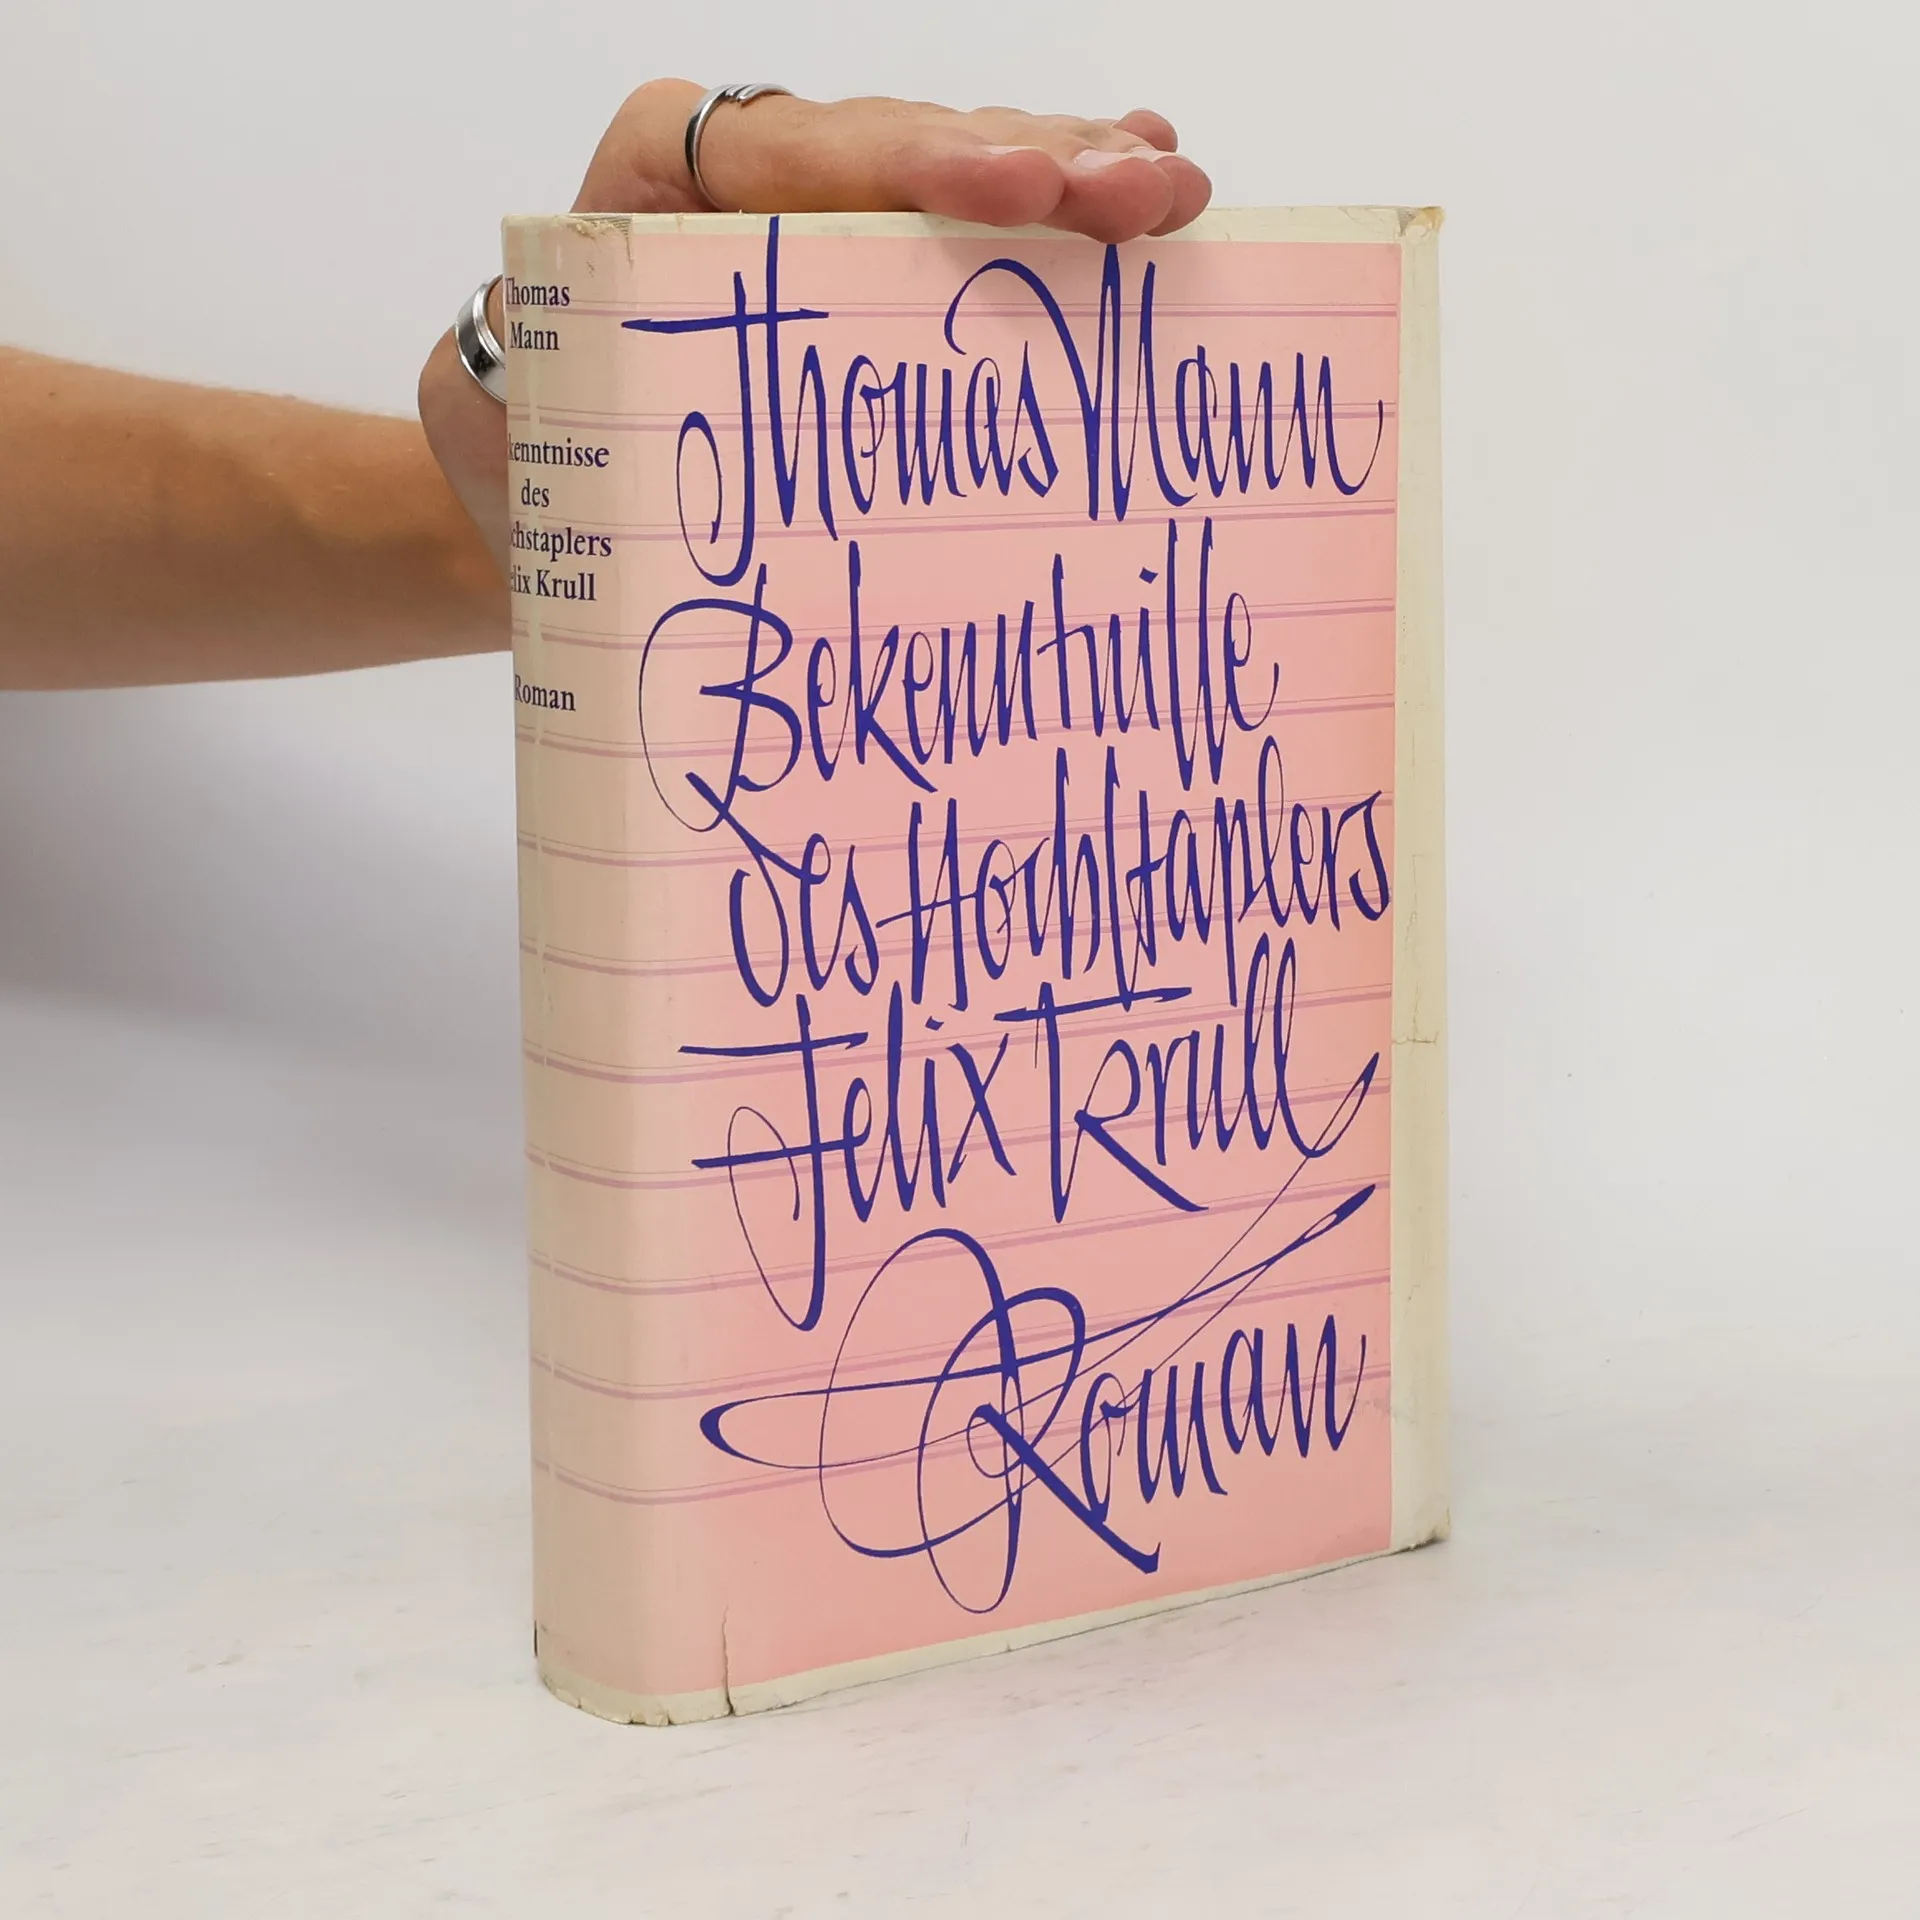 Thomas
Mann
kenntnisse
des
chstaplers
elix Krull
Roman
Thomas Mann
Bekenntniſſe
des Hochſtaplers
Felix Krull
Roman